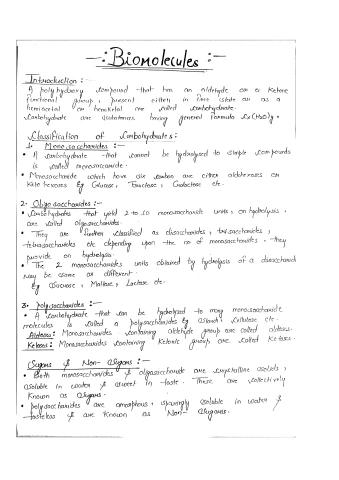 -: Biomolecules :-
Introduction :-
A polyhydroxy compound that has an aldehyde or a Ketone
functional group, present either in free state or as a
hemiacetal or hemiketal are called carbohydrate.
Carbohydrate are substances having general formula Cx(H2O)y.
Classification of Carbohydrates :-
1. Monosaccharides :-
• A carbohydrate that cannot be hydrolysed to simple compounds
is called monosaccharide.
• Monosaccharide which have six carbon are either aldohexoses or
Keto hexoses Eg Glucose, Fructose, Galactose etc.
2. Oligosaccharides :-
• Carbohydrates that yield 2 to 10 monosaccharide units, on hydrolysis,
are called oligosaccharides.
• They are further classified as disaccharides, trisaccharides,
tetrasaccharides etc depending upon the no of monosaccharides, they
provide on hydrolysis.
• The 2 monosaccharides units obtained by hydrolysis of a disaccharid
may be same or different.
Eg Sucrose, Maltose, Lactose etc.
3. Polysaccharides :-
• A carbohydrate that can be hydrolysed to many monosaccharide
molecules is called a polysaccharides Eg Starch, cellulose etc.
Aldoses: Monosaccharides containing aldehyde group are called aldoses.
Ketoses: Monosaccharides containing Ketonic group, are called Ketoses.
Sugars & Non- Sugars :-
• Both monosaccharides & oligosaccharide are crystalline solids,
soluble in water & sweet in taste. These are collectively
Known as Sugars.
• polysaccharides are amorphous, sparingly soluble in water &
tasteless & are Known as Non- Sugars.